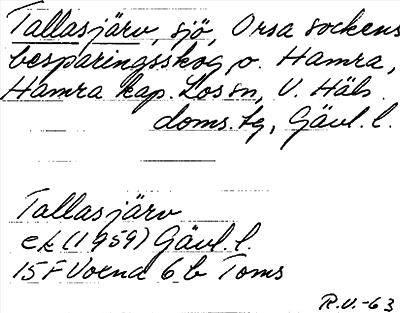 Tallasjärv, sjö, Orsa sockens
besparingsskog o. Hamra,
Hamra kap. Los sn, V. Häls.
doms. tg, Gävl. l.
Tallasjärv
ek (1959) Gävl. l.
15 F Voxna 6 b Toms
R.V.-63